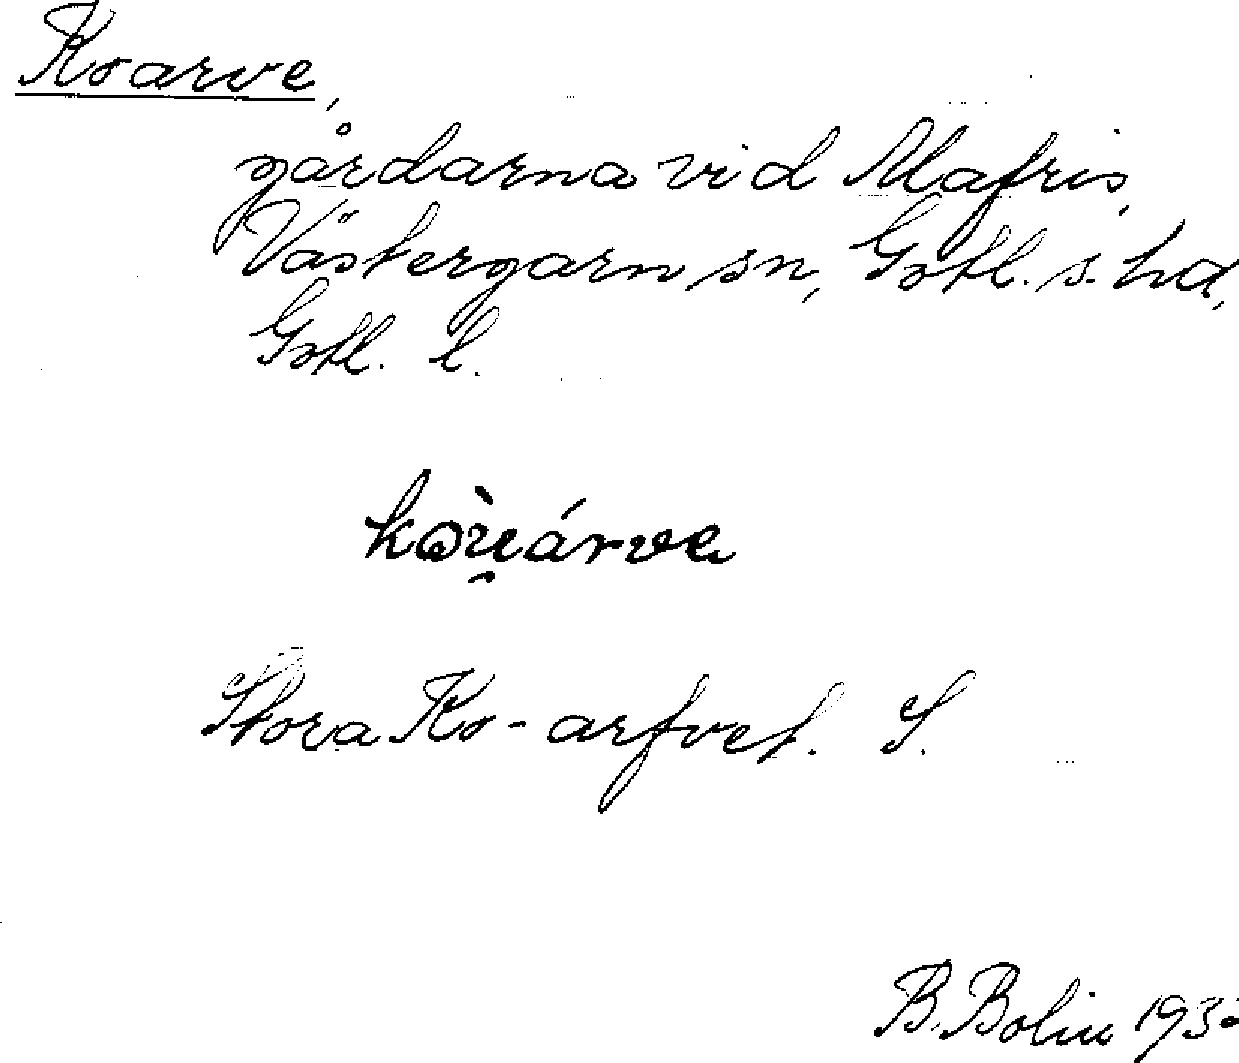 Koarve,
gårdarna vid Mafris,
Västergarn sn, Gotl. s. hd,
Gotl. l.
Stora Ko-arfvet. S.
B. Bolin